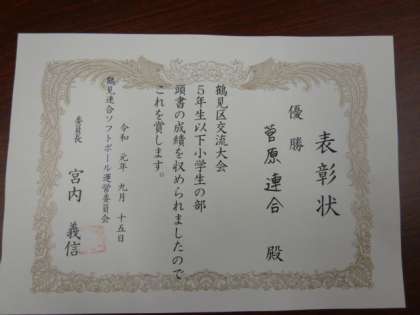 表彰状
優勝
菅原連合 殿
鶴見区交流大会
5年生以下小学生の部
頭書の成績を収められましたので
これを賞します。
令和 元年 九月 十五日
鶴見連合ソフトボール運営委員会
委員長 宮内 義信